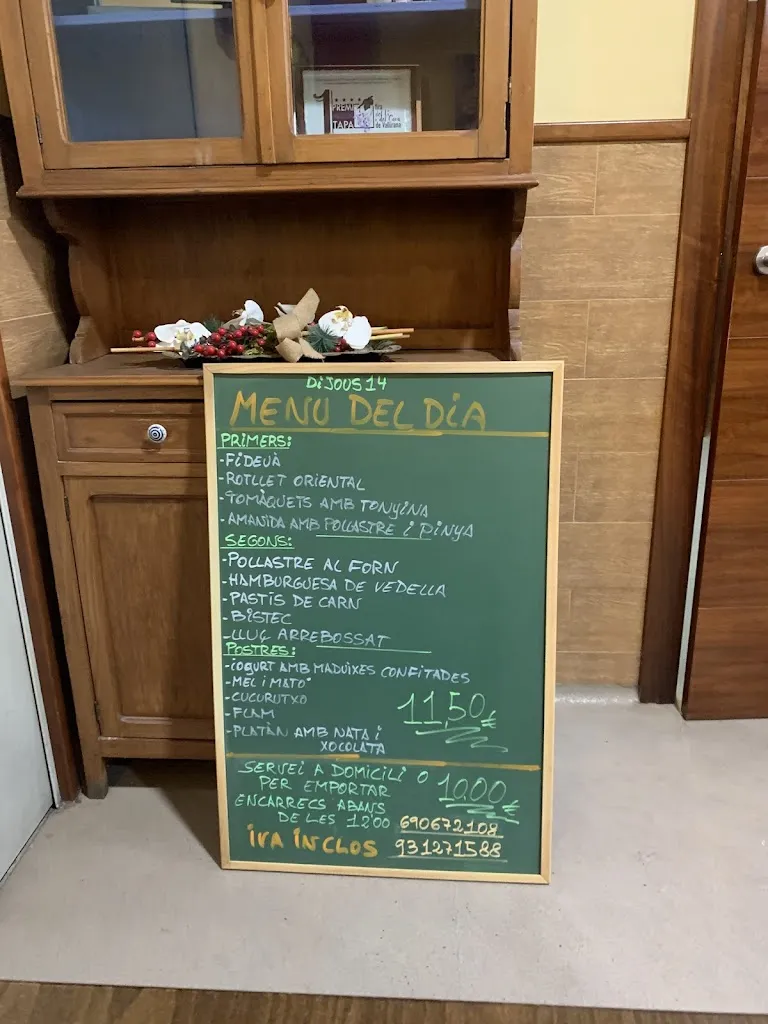 PREMI
TAPA
de Vallirana
DiJOUS 14
MENU DEL DiA
PRiMERS:
-FiDEUÀ
-ROTLLET ORiENTAL
-TOMÀQUETS AMB TONYiNA
-AMANiDA AMB POLLASTRE i PiNYA
SEGONS:
-POLLASTRE AL FORN
-HAMBURGUESA DE VEDELLA
-PASTiS DE CARN
-BiSTEC
-LLUÇ ARREBOSSAT
POSTRES:
-iOGURT AMB MADUiXES CONFiTADES
-MEL i MATO
-CUCURUTXO
-FLAM
11,50€
-PLATÀN AMB NATA i
XOCOLATA
SERVEi A DOMiCiLi O
PER EMPORTAR
10,00€
ENCARRECS ABANS
DE LES 12'00
690672108
iVA iNCLOS
931271588